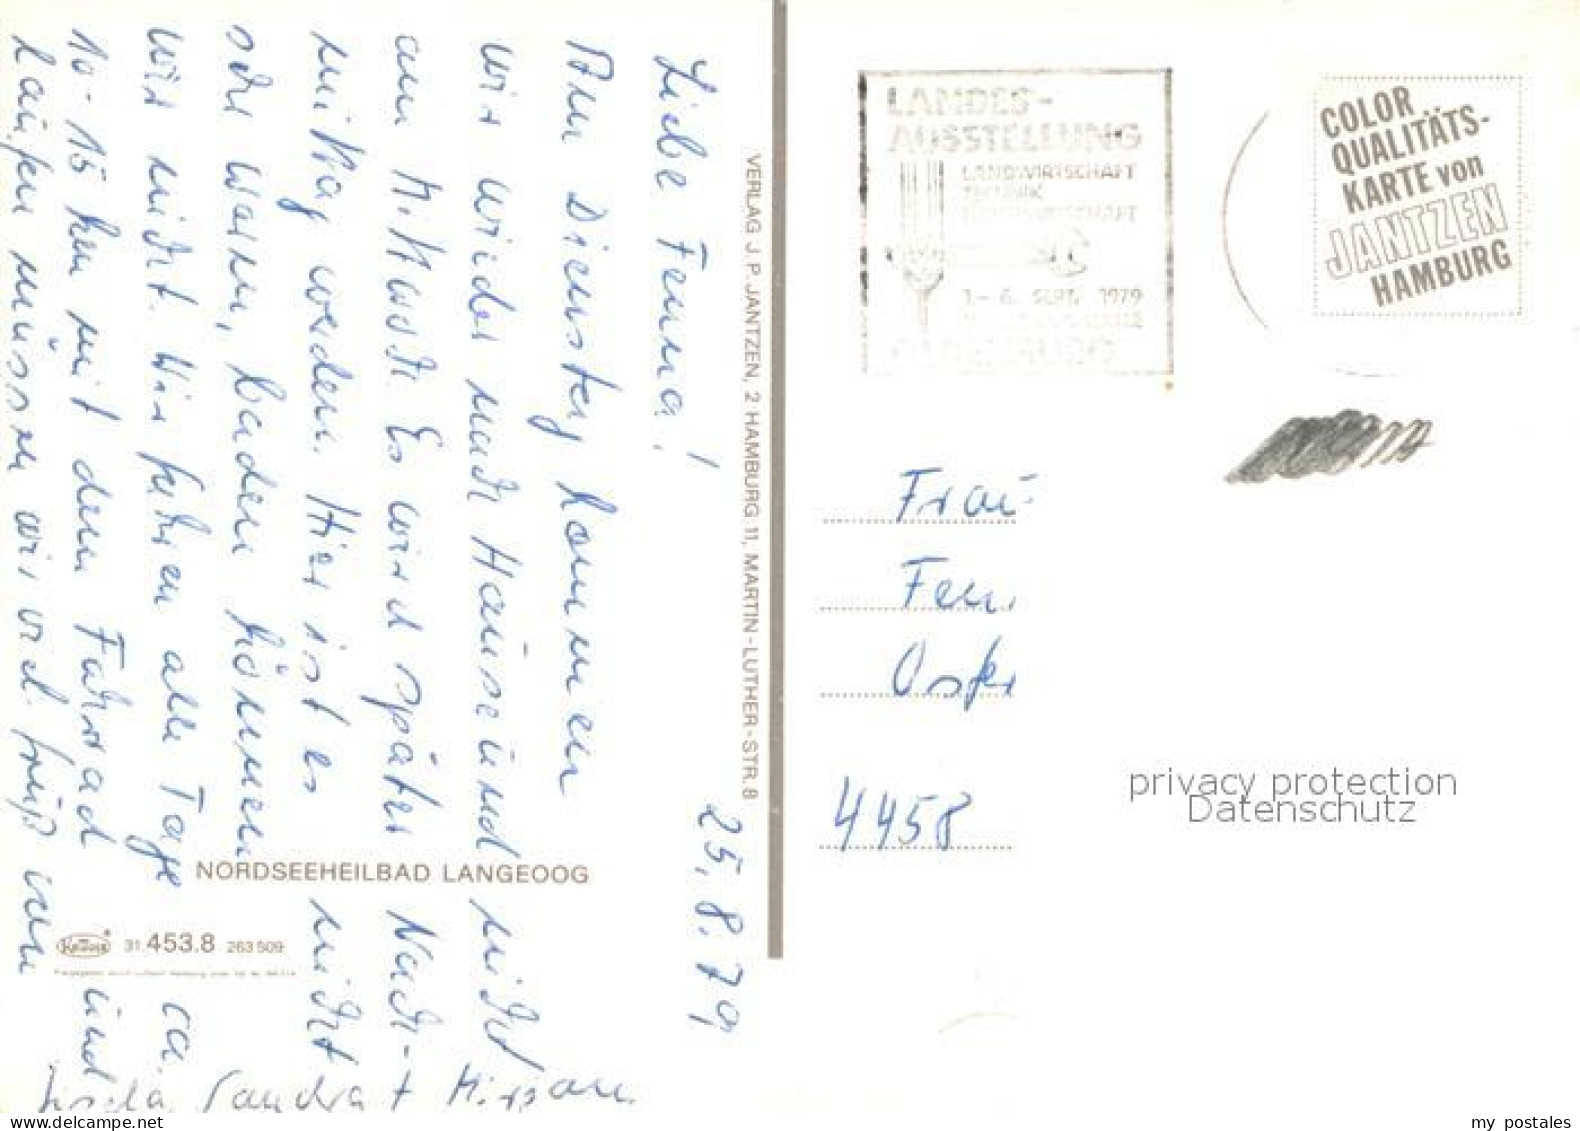 Liebe Fenna!
25.8.79
Am Dienstag kommen
wir wieder nach Hause und nicht
am Mittwoch. Es wird später Nach-
mittag werden. Hier ist es nicht
sehr warm, baden können
wir nicht. Wir fahren alle Tage ca.
10-15 km mit dem Fahrrad und
laufen müssen wir viel. Gruß von
Sandra + Mirjam
VERLAG J. P. JANTZEN, 2 HAMBURG 11, MARTIN-LUTHER-STR. 8
NORDSEEHEILBAD LANGEOOG
Krüger 31.453.8 263 509
LANDES-
AUSSTELLUNG
LANDWIRTSCHAFT
TECHNIK
HAUSWIRTSCHAFT
1.-6. SEPT. 1979
OLDENBURG
COLOR
QUALITÄTS-
KARTE von
JANTZEN
HAMBURG
Frau
Fen
Oster
4458
privacy protection
Datenschutz
my postales
www.delcampe.net